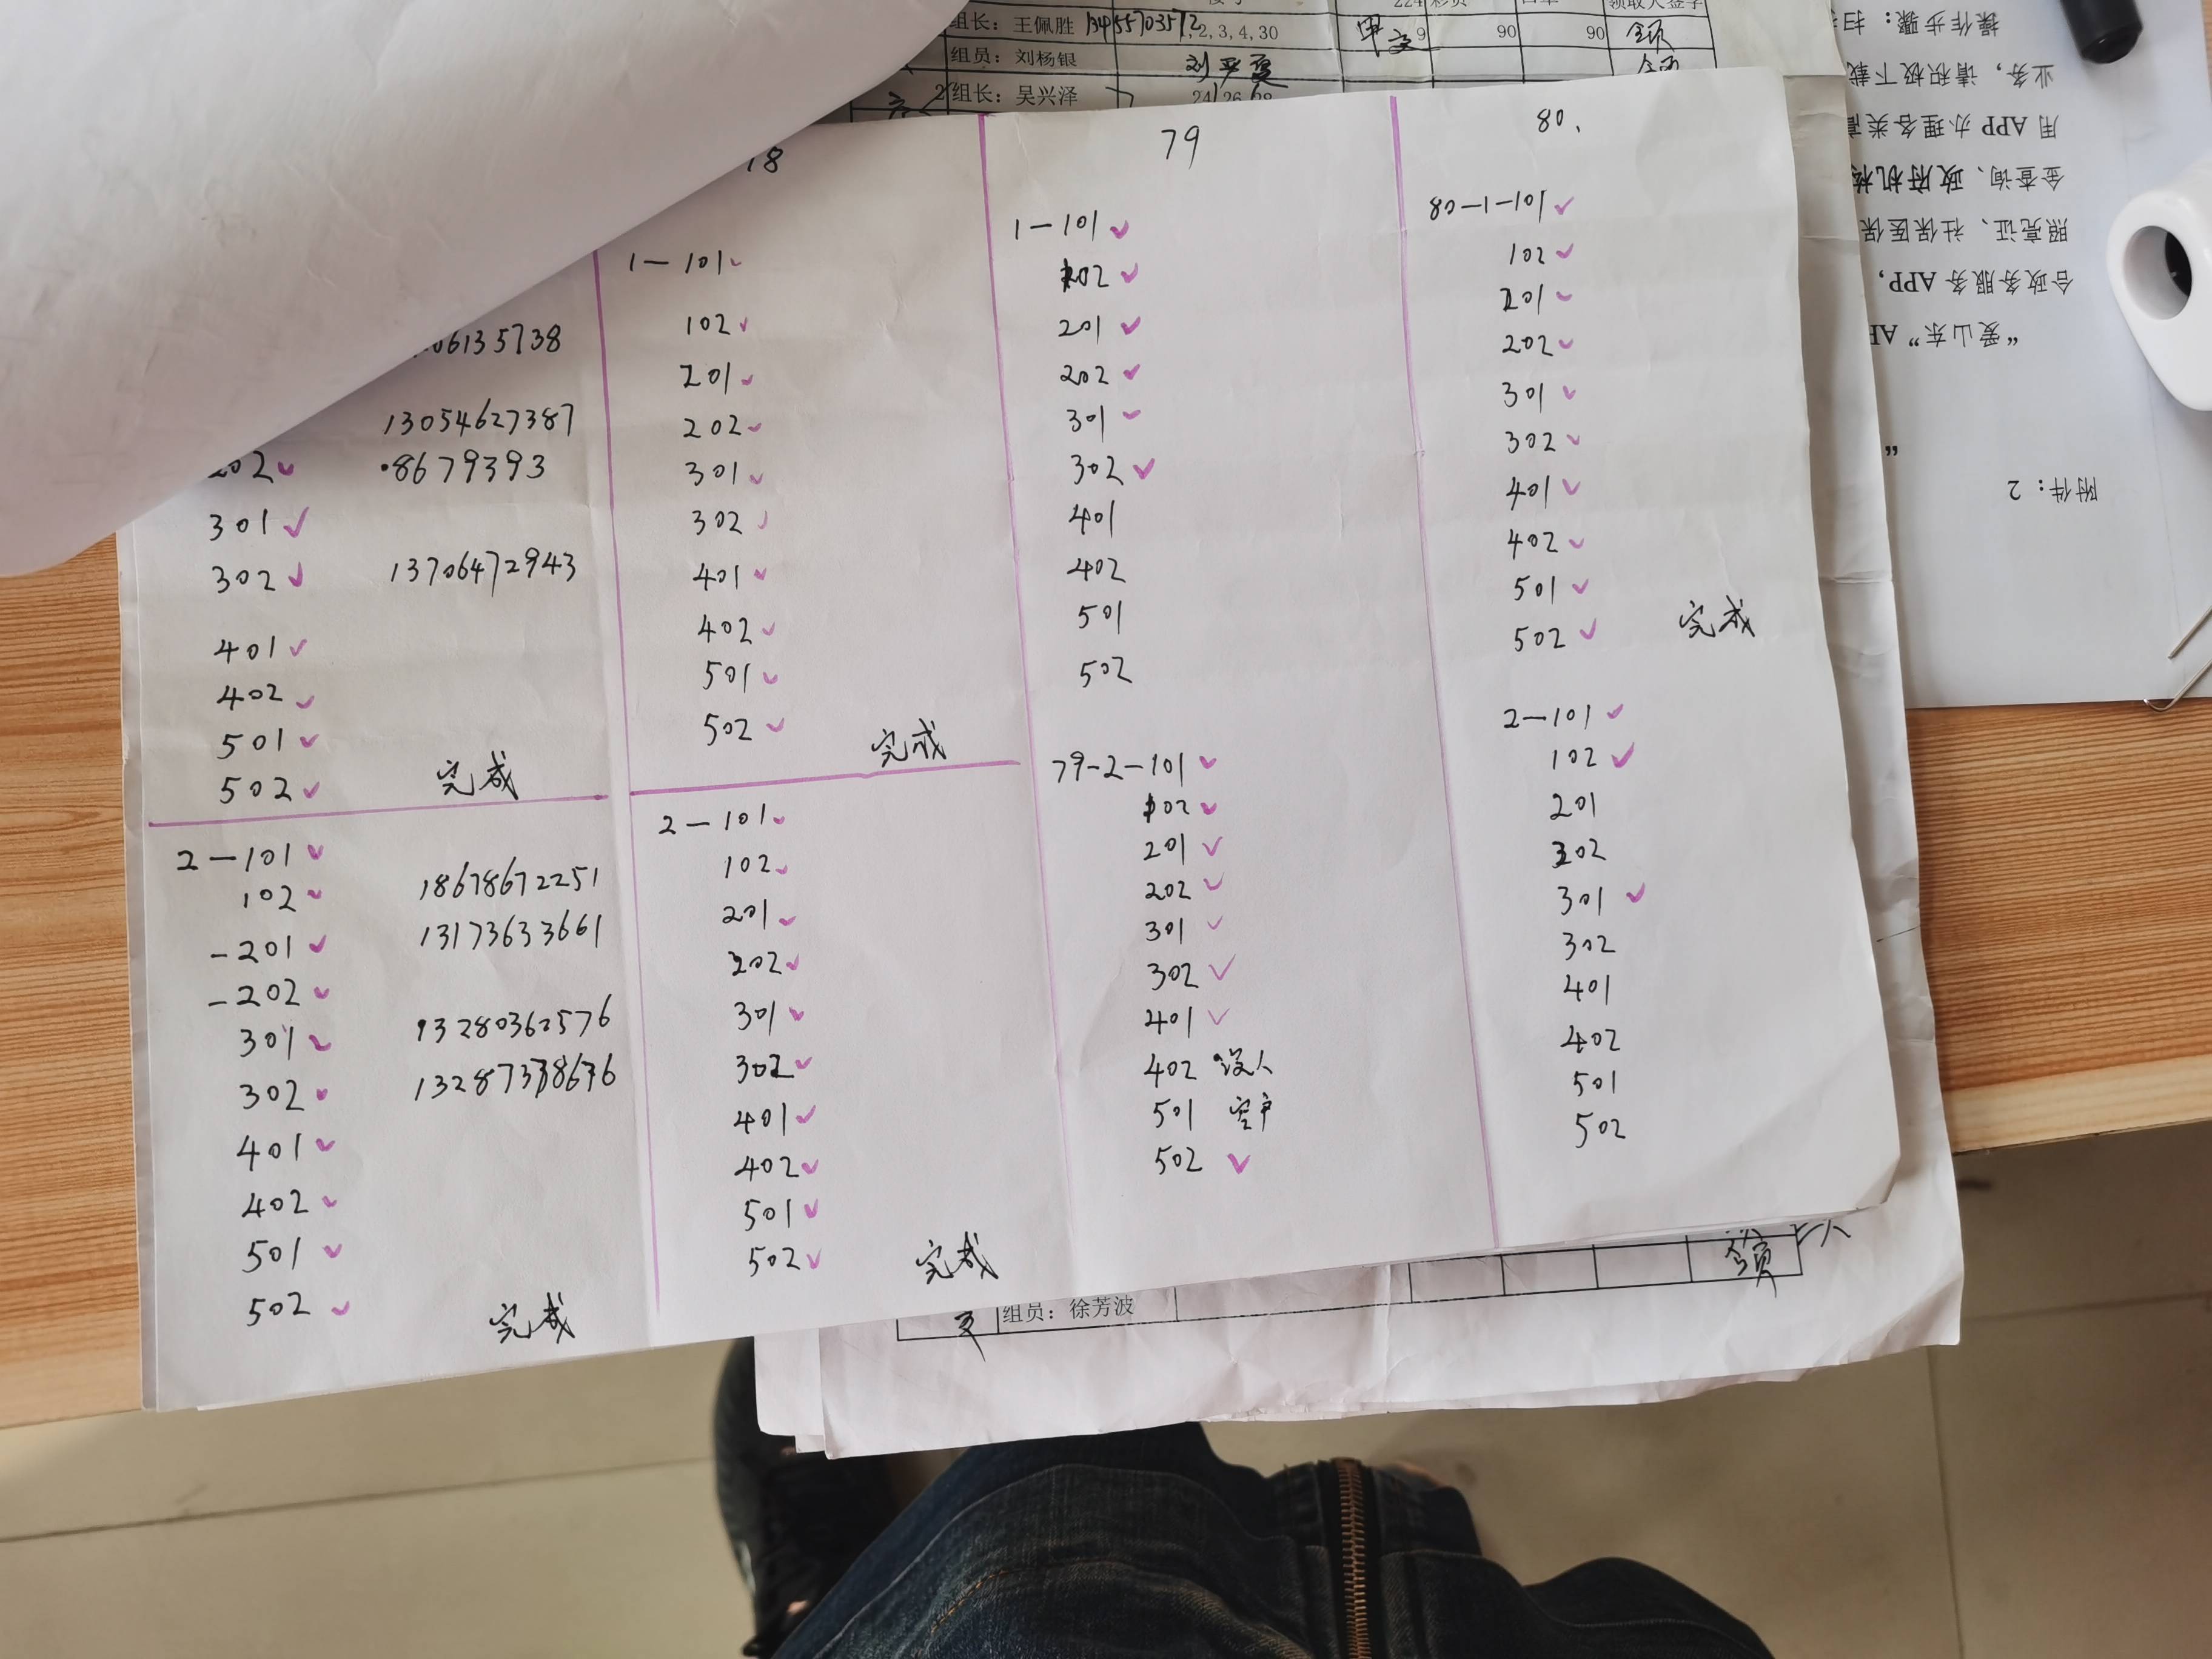 组长：王佩胜 13455703572
,2,3,4,30
9
90
90
组员：刘杨银
2 组长：吴兴泽
24 26 28
06135738
13054627387
202 ✓ 8679393
301 ✓
302 ✓ 13706472943
401 ✓
402 ✓
501 ✓
502 ✓ 完成
2-101 ✓
102 ✓ 18678672251
-201 ✓ 13173633661
-202 ✓
301 ✓ 13280362576
302 ✓
401 ✓
402 ✓
501 ✓
502 ✓ 完成
78
1-101 ✓
102 ✓
201 ✓
202 ✓
301 ✓
302 ✓
401 ✓
402 ✓
501 ✓
502 ✓ 完成
2-101 ✓
102 ✓
201 ✓
202 ✓
301 ✓
302 ✓
401 ✓
402 ✓
501 ✓
502 ✓ 完成
79
1-101 ✓
102 ✓
201 ✓
202 ✓
301 ✓
302 ✓
401
402
501
502
79-2-101 ✓
102 ✓
201 ✓
202 ✓
301 ✓
302 ✓
401 ✓
402 没人
501 空户
502 ✓
80.
80-1-101 ✓
102 ✓
201 ✓
202 ✓
301 ✓
302 ✓
401 ✓
402 ✓
501 ✓
502 ✓ 完成
2-101 ✓
102 ✓
201
202
301 ✓
302
401
402
501
502
组员：徐芳波
附件：2
“爱山东”
合政务服务 APP，
照亮证、社保医保
金查询、政府机构
用 APP 办理各类
业务，请积极下载
操作步骤：扫